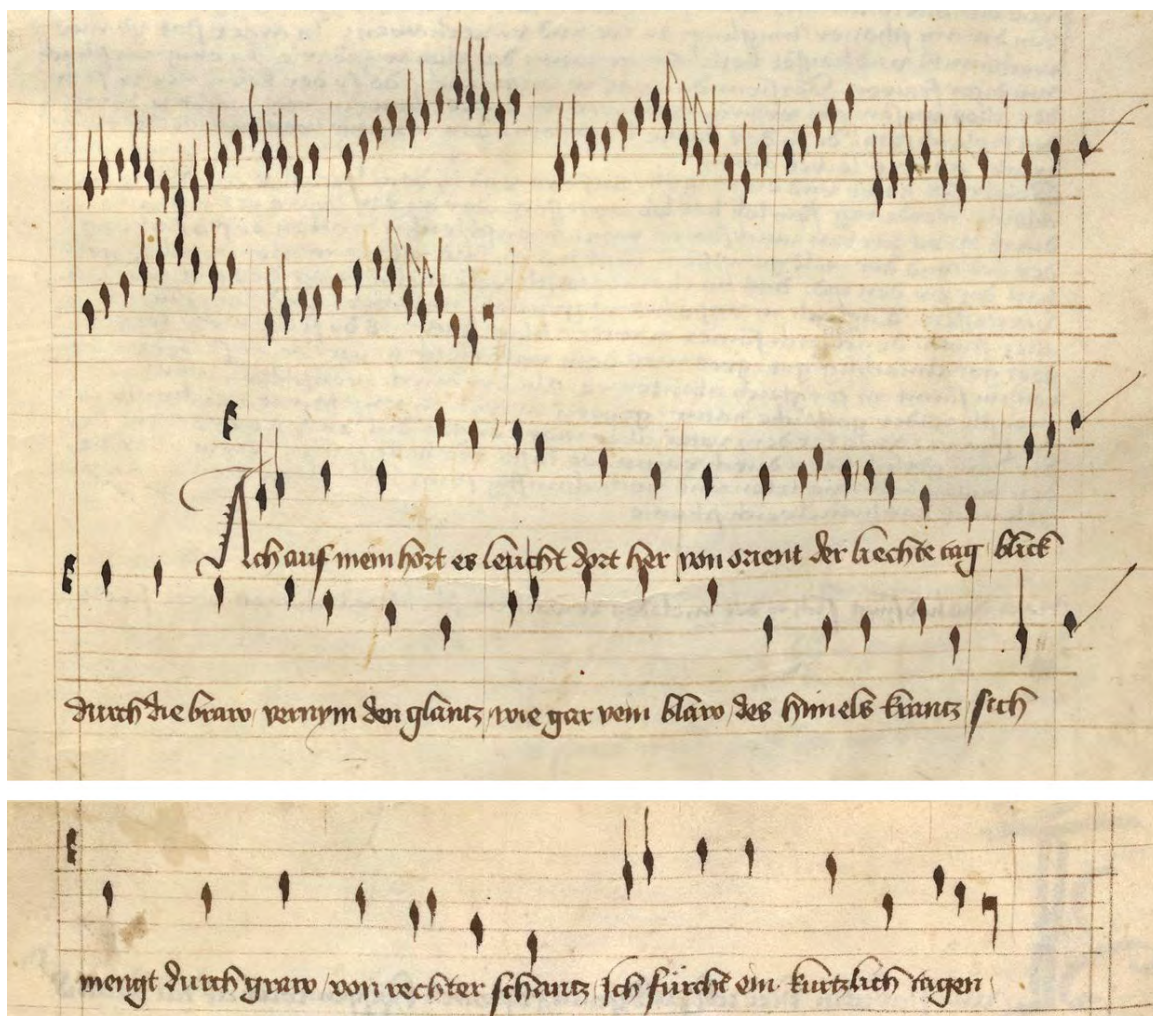 Ach auf mein hort es leucht dort her von orient der liechte tag blick
durch die braw vernym den glantz wie gar vein blaw des himels krantz sich
mengt durch graw von rechter schantz Ich fürcht ein kurtzlich tagen